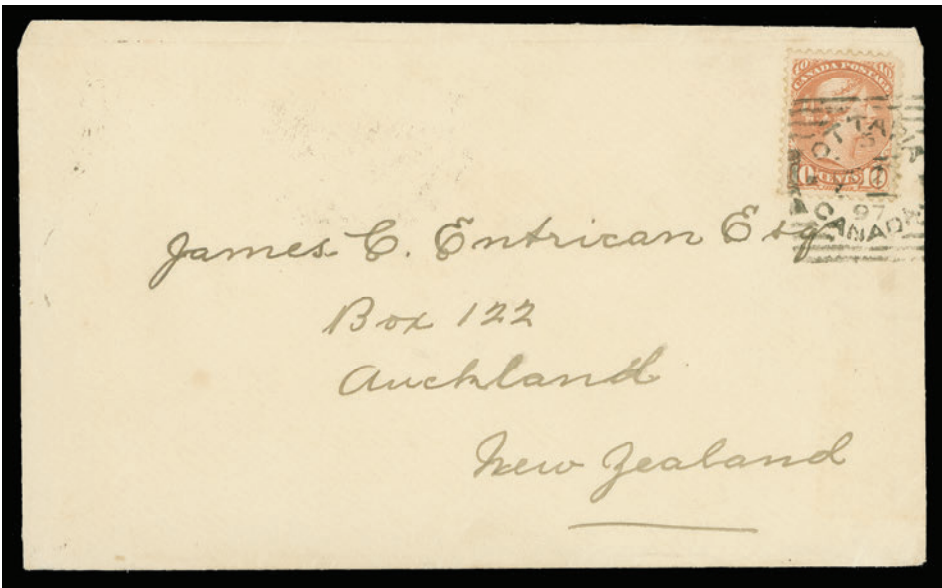 10 10
CANADA POSTAGE
10 CENTS 10
OTTAWA
97
CANADA
James C. Entrican Esq
Box 122
Auckland
New Zealand